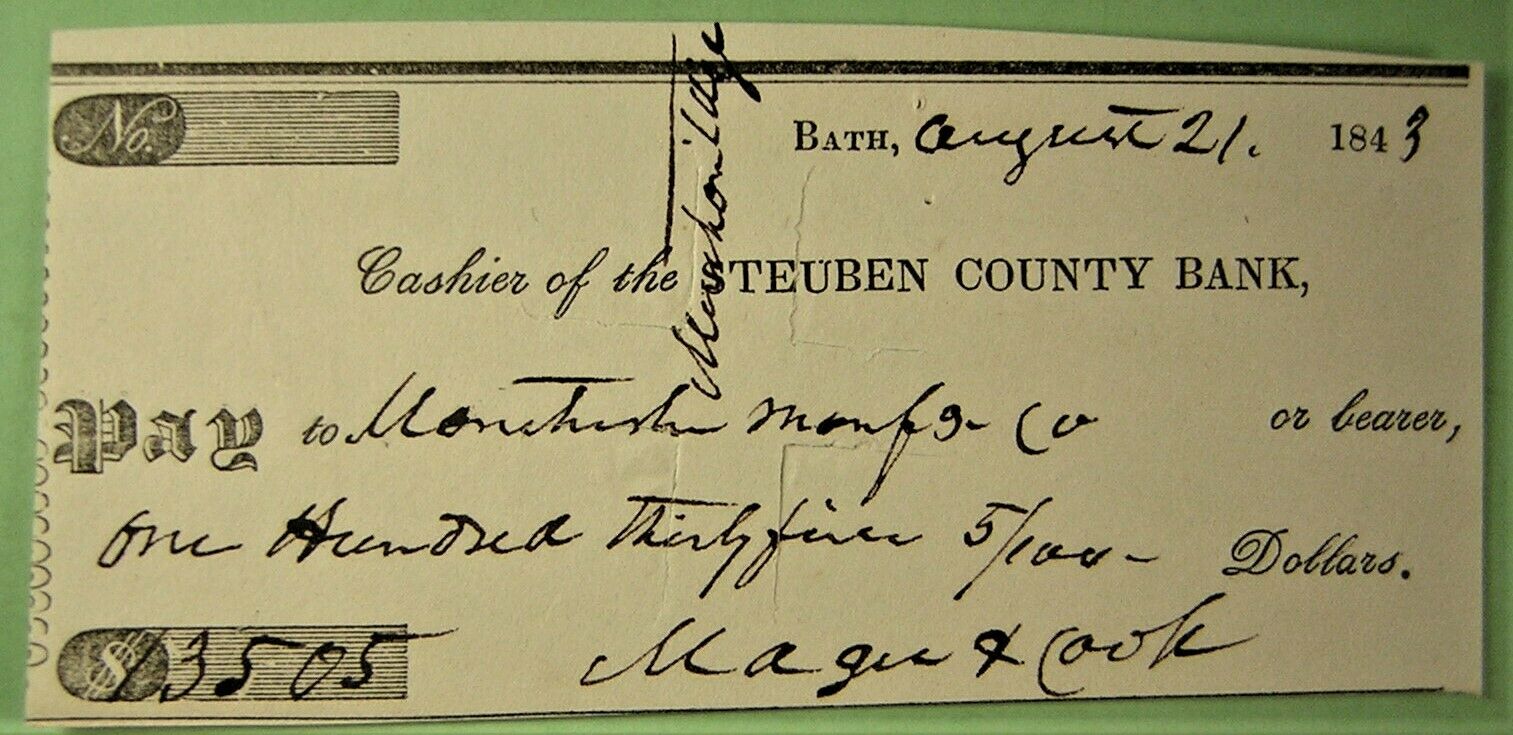 No.
BATH, August 21. 1843
Cashier of the STEUBEN COUNTY BANK,
Pay to Manchester Manfg Co or bearer,
One Hundred Thirty five 5/100 - Dollars.
$ 135 05
Magee & Cook